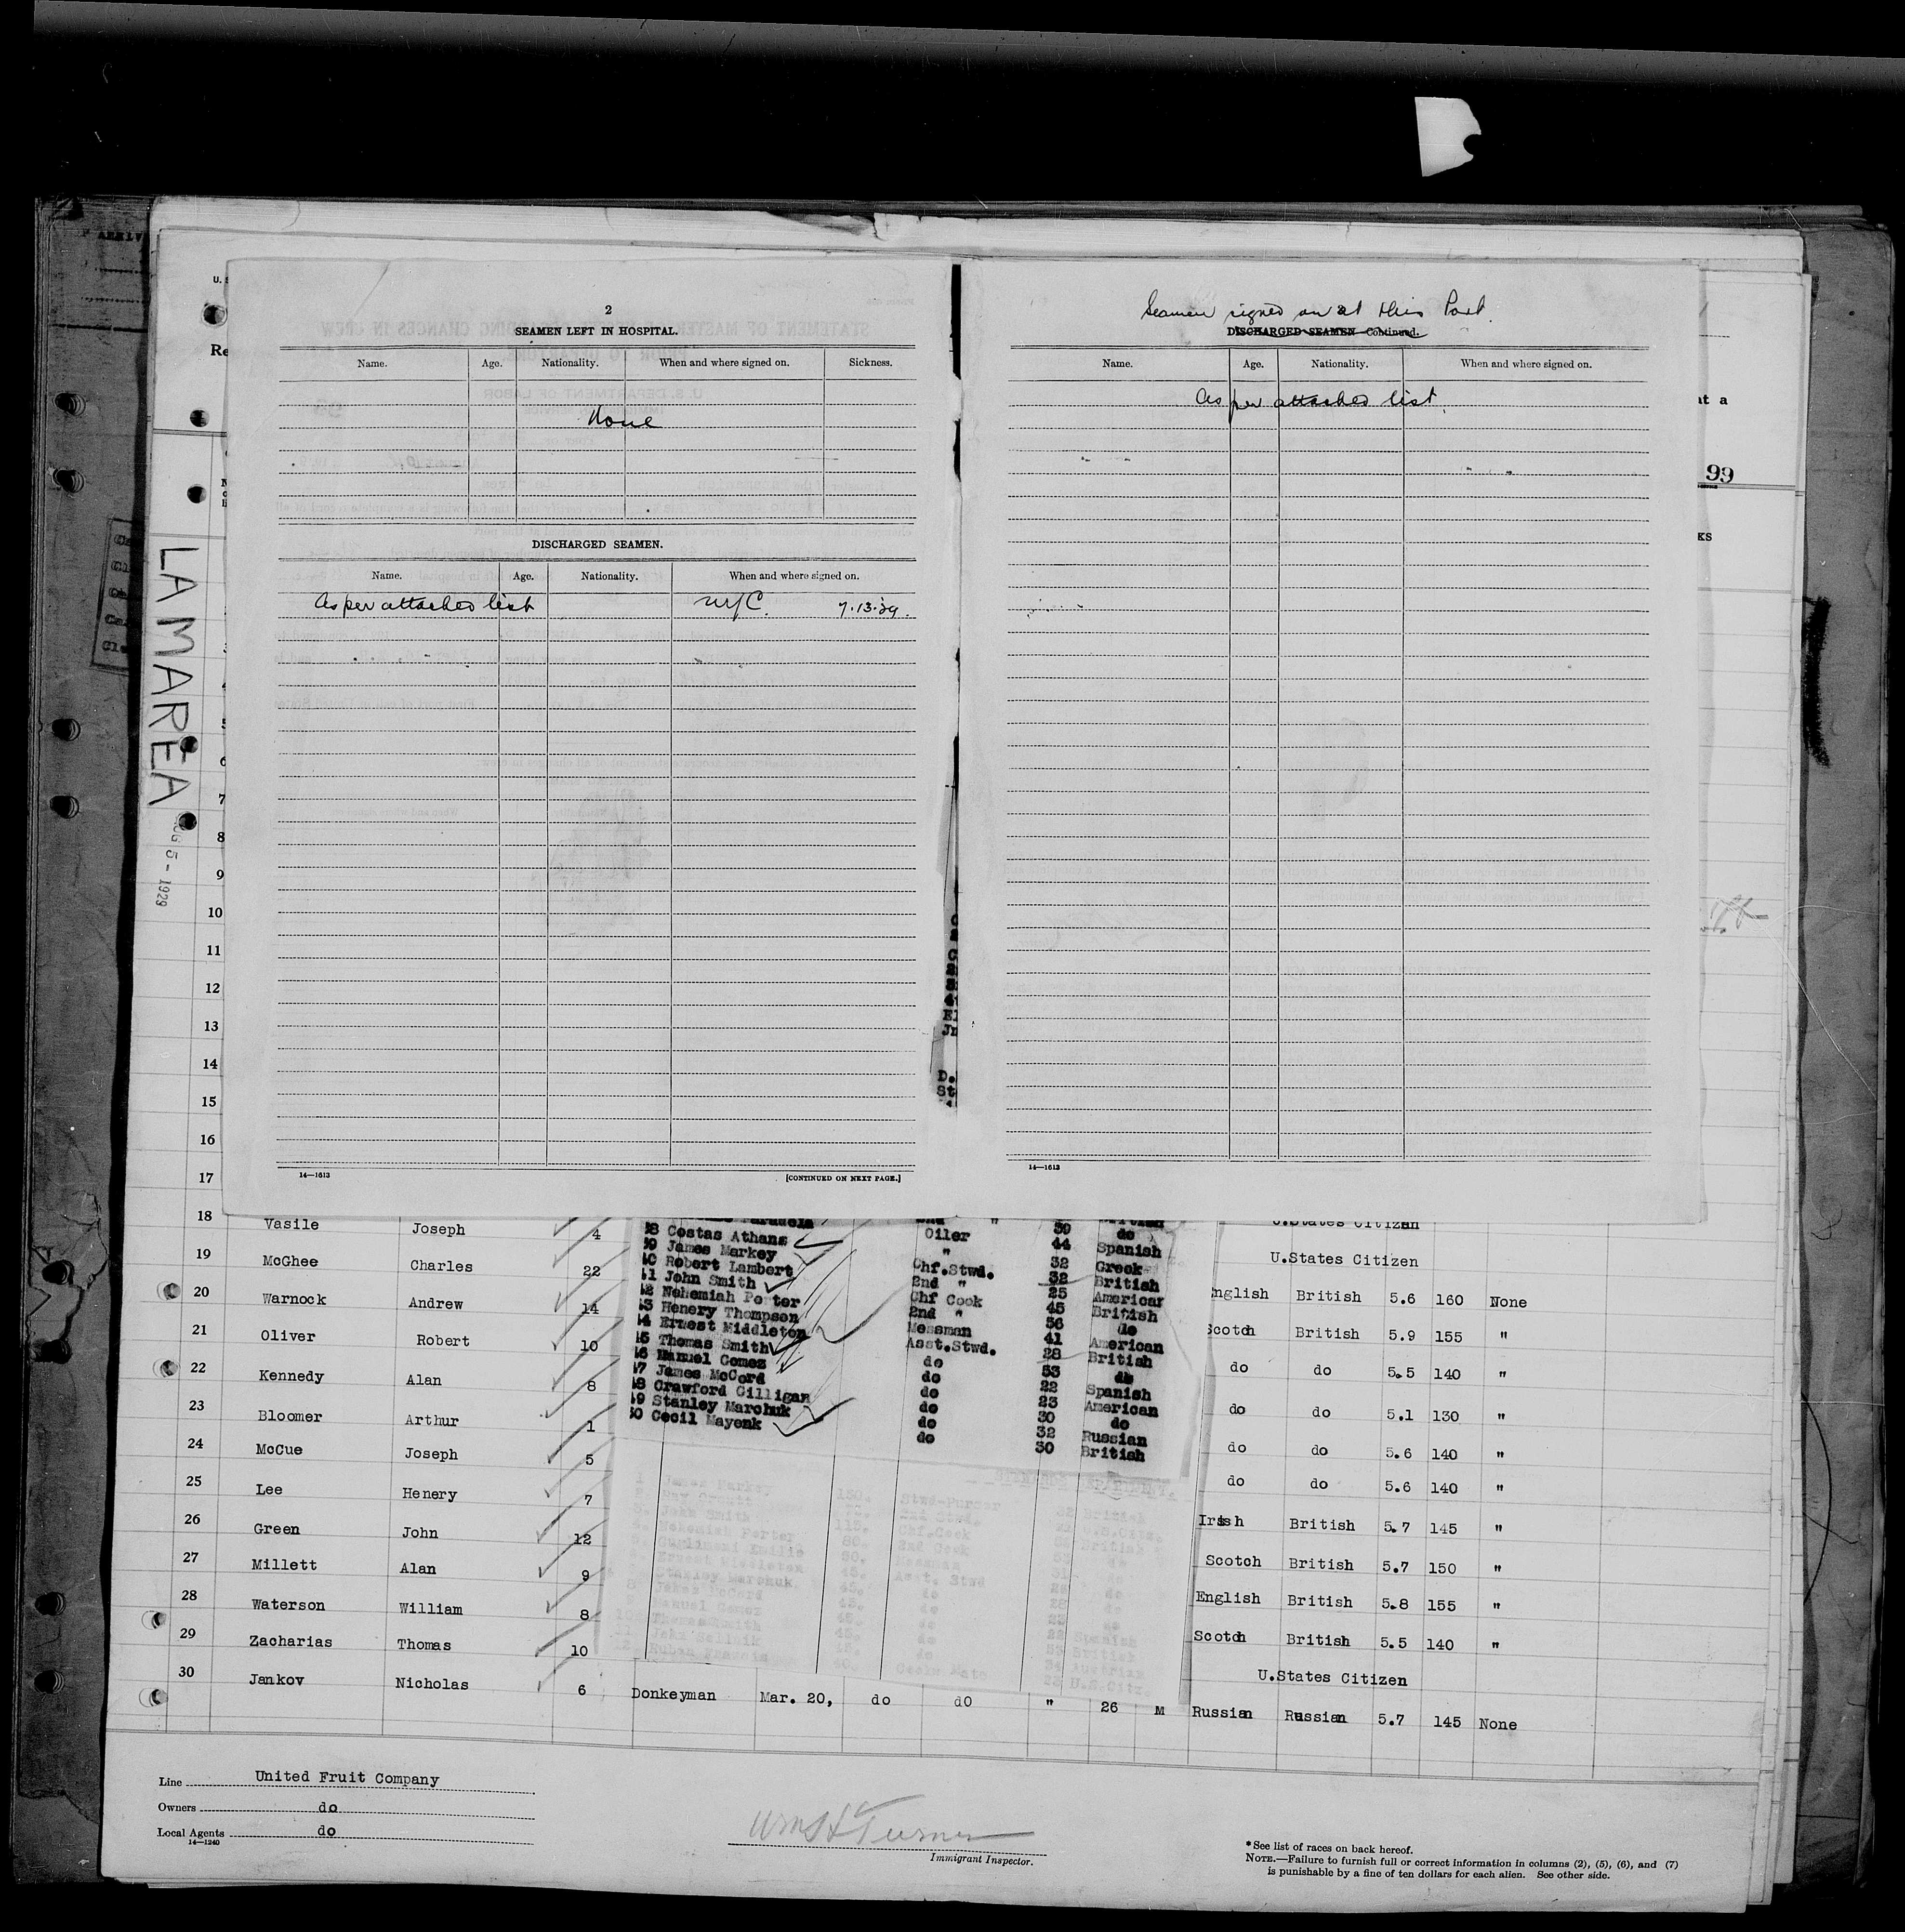 2
SEAMEN LEFT IN HOSPITAL.
Name. Age. Nationality. When and where signed on. Sickness.
None
DISCHARGED SEAMEN.
Name. Age. Nationality. When and where signed on.
As per attached list NYC. 7.13.29.
14—1613 [CONTINUED ON NEXT PAGE.]
Seamen signed on at this Port.
DISCHARGED SEAMEN—Continued.
Name. Age. Nationality. When and where signed on.
As per attached list.
14—1613
U. S
Re
at a
99
KS
LA MAREA
5 - 1929
4
5
6
7
8
9
10
11
12
13
14
15
16
17
18 Vasile Joseph 4 U.States Citizen
19 McGhee Charles 22 U.States Citizen
20 Warnock Andrew 14 English British 5.6 160 None
21 Oliver Robert 10 Scotch British 5.9 155 "
22 Kennedy Alan 8 do do 5.5 140 "
23 Bloomer Arthur 1 do do 5.1 130 "
24 McCue Joseph 5 do do 5.6 140 "
25 Lee Henery 7 do do 5.6 140 "
26 Green John 12 Irish British 5.7 145 "
27 Millett Alan 9 Scotch British 5.7 150 "
28 Waterson William 8 English British 5.8 155 "
29 Zacharias Thomas 10 Scotch British 5.5 140 "
U.States Citizen
30 Jankov Nicholas 6 Donkeyman Mar. 20, do do " 26 M Russian Russian 5.7 145 None
38 Costas Athans Oiler 39 do
39 James Markey " 44 Spanish
40 Robert Lambert Chf.Stwd. 32 Greek
41 John Smith 2nd " 32 British
42 Nehemiah Porter Chf Cook 25 American
43 Henery Thompson 2nd " 45 British
44 Ernest Middleton Messman 56 do
45 Thomas Smith Asst.Stwd. 41 American
46 Manuel Gomez do 28 British
47 James McCord do 53 do
48 Crawford Gilligan do 22 Spanish
49 Stanley Marchuk do 23 American
50 Cecil Mayenk do 30 do
do 32 Russian
30 British
Line United Fruit Company
Owners do
Local Agents do
14—1240
Wm H Turner
Immigrant Inspector.
*See list of races on back hereof.
NOTE.—Failure to furnish full or correct information in columns (2), (5), (6), and (7)
is punishable by a fine of ten dollars for each alien. See other side.